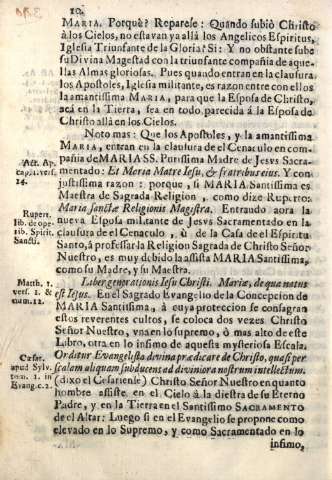 10.
MARIA. Porquè? Reparese: Quando subiò Christo
à los Cielos, no estavan ya allà los Angelicos Espiritus,
Iglesia Triunfante de la Gloria? Si: Y no obstante sube
su Divina Magestad con la triunfante compañia de aque-
llas Almas gloriosas. Pues quando entran en la clausura
los Apostoles, Iglesia militante, es razon entre con ellos
la amantissima MARIA, para que la Esposa de Christo,
acà en la Tierra, sea en todo parecida à la Esposa de
Christo allà en los Cielos.
Noto mas: Que los Apostoles, y la amantissima
MARIA, entran en la clausura de el Cenaculo en com-
pañia de MARIA SS. Purissima Madre de Jesvs Sacra-
mentado: Et Maria Matre Iesu, & fratribus eius. Y con
justissima razon: porque, si MARIA Santissima es
Maestra de Sagrada Religion, como dize Ruperto:
Maria sanctæ Religionis Magistra. Entrando aora la
nueva Esposa militante de Jesvs Sacramentado en la
clausura de el Cenaculo, ù de la Casa de el Espiritu
Santo, à professar la Religion Sagrada de Christo Señor
Nuestro, es muy debido la assista MARIA Santissima,
como su Madre, y su Maestra.
Liber generationis Iesu Christi. Mariæ, de qua natus
est Iesus. En el Sagrado Evangelio de la Concepcion de
MARIA Santissima, à cuya proteccion se consagran
estos reverentes cultos, se coloca dos vezes Christo
Señor Nuestro, vna en lo supremo, ò mas alto de este
Libro, otra en lo infimo de aquesta mysteriosa Escala.
Orditur Evangelista divina prædicare de Christo, quasi per
scalam aliquam subducens ad diviniora nostrum intellectum.
(dixo el Cesariense) Christo Señor Nuestro en quanto
hombre assiste, en el Cielo à la diestra de su Eterno
Padre, y en la Tierra en el Santissimo SACRAMENTO
de el Altar: Luego si en el Evangelio se propone como
elevado en lo Supremo, y como Sacramentado en lo
infimo,
Act. Ap.
cap. 1. vers.
14.
Rupert.
lib. de ope-
rib. Spirit.
Sancti.
Matth. 1.
vers. 1. &
num. 12.
Cæsar.
apud Sylv.
tom. 1. in
Evang. c. 2.